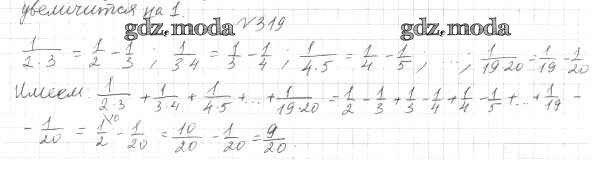 увеличится на 1.
gdz.moda №319 gdz.moda
1/(2·3) = 1/2 - 1/3 ; 1/(3·4) = 1/3 - 1/4 ; 1/(4·5) = 1/4 - 1/5 , ...; 1/(19·20) = 1/19 - 1/20
Имеем: 1/(2·3) + 1/(3·4) + 1/(4·5) + ... + 1/(19·20) = 1/2 - 1/3 + 1/3 - 1/4 + 1/4 - 1/5 + ... + 1/19 -
- 1/20 = 1\10/2 - 1/20 = 10/20 - 1/20 = 9/20.